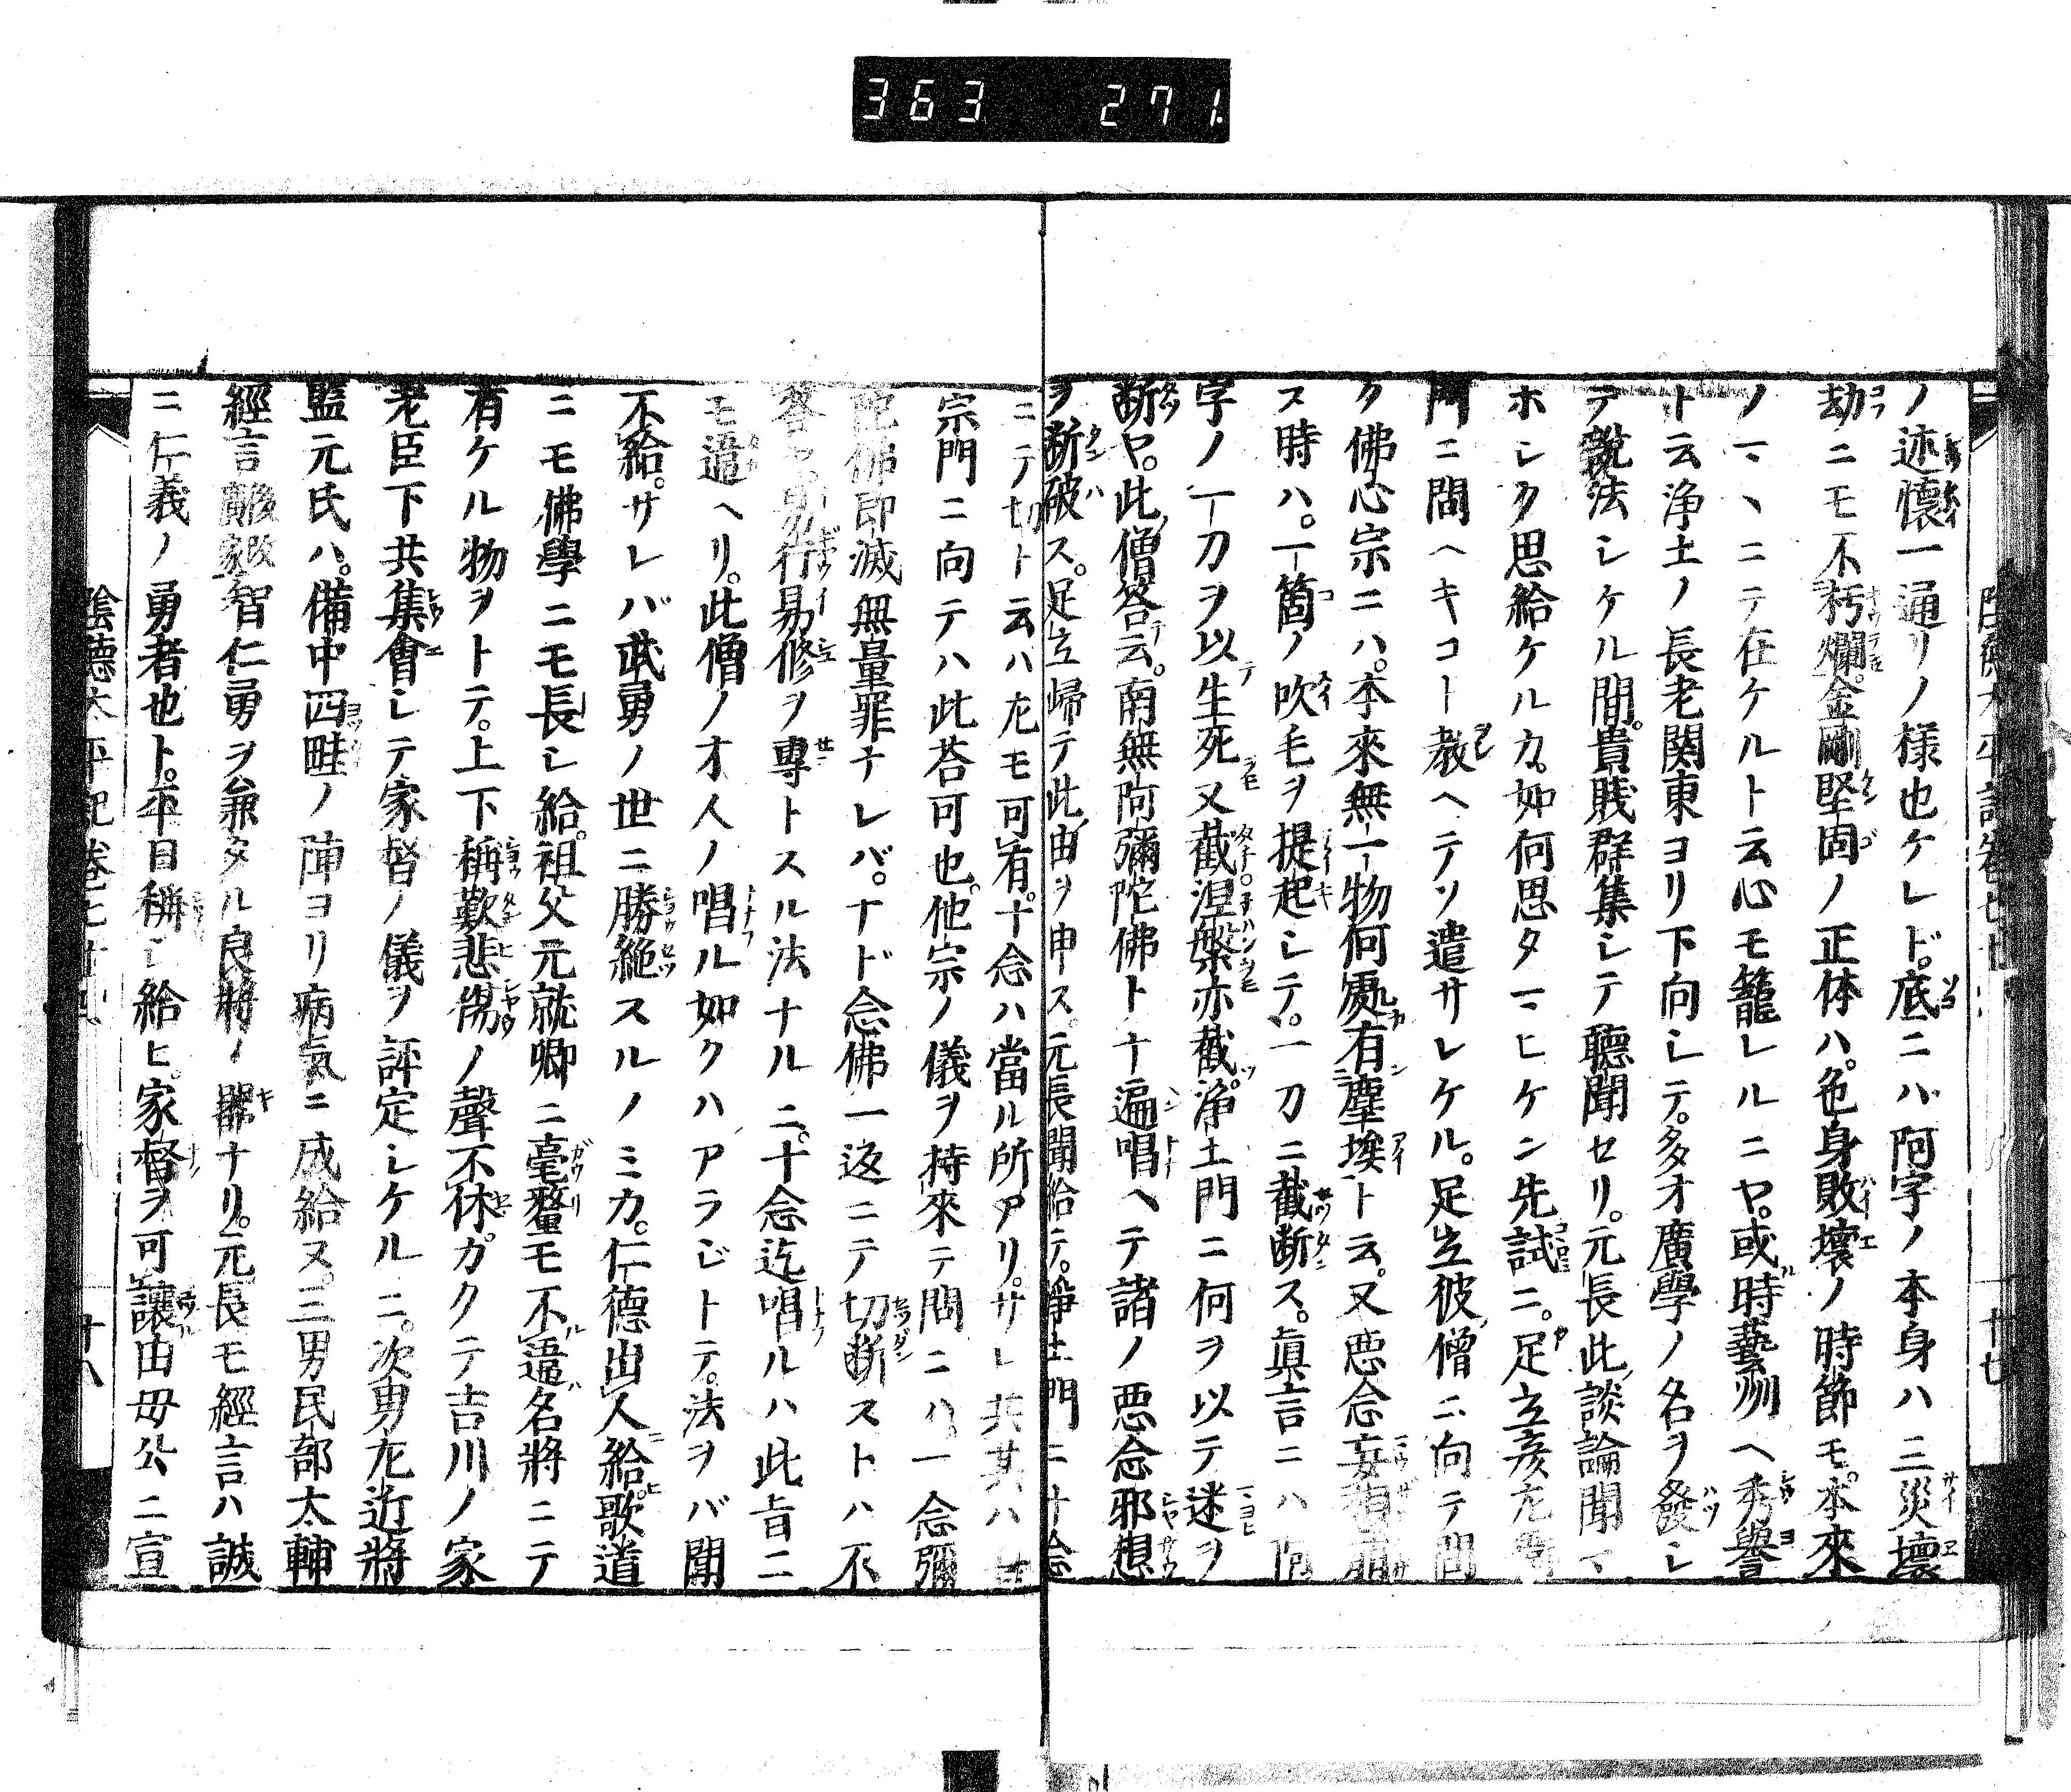 363 271.
ノ述懷一通リノ様也ケレド。底ニハ阿字ノ本身ハ三災壞
劫ニモ不朽爛。金剛堅固ノ正体ハ。色身敗壞ノ時節モ。本來
ノマヽニテ在ケルト云心モ籠レルニヤ。或時藝州ヘ秀譽
ト云浄土ノ長老関東ヨリ下向シテ。多才廣學ノ名ヲ發シ
テ說法シケル間。貴賤群集シテ聽聞セリ。元長此談論聞マ
ホシク思給ケルカ。如何思タマヒケン先試ニ。足立彦左衞
門ニ問ヘキコト教ヘテソ遣サレケル。足立彼僧ニ向テ問
ク佛心宗ニハ。本來無一物何處有塵埃ト云。又悪念妄想萠
ス時ハ。一箇ノ吹毛ヲ提起シテ。一刀ニ截断ス。眞言ニハ阿
字ノ一刀ヲ以生死又截涅槃亦截。浄土門ニ何ヲ以テ迷ヲ
断ヤ。此僧答云。南無阿彌陀佛ト十遍唱ヘテ諸ノ悪念邪想
ヲ断破ス。足立歸テ此由ヲ申ス。元長聞給テ。浄土門ニ十念
ニテ切ト云ハ左モ可有。十念ハ當ル所アリ。サレ共其ハ
宗門ニ向テハ此荅可也。他宗ノ儀ヲ持來テ問ニハ。一念彌
陀佛即滅無量罪ナレバ。ナド念佛一返ニテ切断ストハ不
答ヤ。易行易修ヲ專トスル法ナルニ。十念迄唱ルハ此旨ニ
モ違ヘリ。此僧ノオ人ノ唱ル如クハアラジトテ。法ヲバ聞
不給。サレバ武勇ノ世ニ勝絶スルノミカ。仁德出人給。歌道
ニモ佛學ニモ長シ給。祖父元就卿ニ毫釐モ不違名將ニテ
有ケル物ヲトテ。上下稱歎悲傷ノ聲不休。カクテ吉川ノ家
老臣下共集會シテ家督ノ儀ヲ評定シケルニ。次男左近將
監元氏ハ。備中四畦ノ陣ヨリ病気ニ成給ヌ。三男民部太輔
經言後改廣家智仁勇ヲ兼タル良將ノ器ナリ。元長モ經言ハ誠
ニ仁義ノ勇者也ト。平日稱シ給ヒ。家督ヲ可讓由毋公ニ宣
陰德太平記卷七十
十八